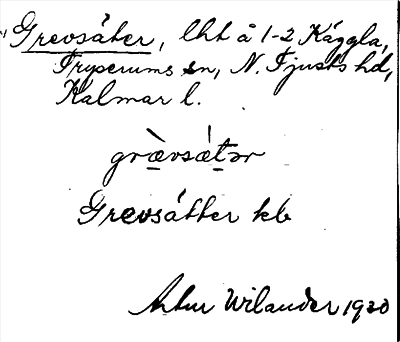 Grevsäter, lht å 1-2 Käggla,
Tryserums sn, N. Tjusts hd,
Kalmar l.
græ̀vsǽtər
Grevsätter kb
Artur Wilander 1930